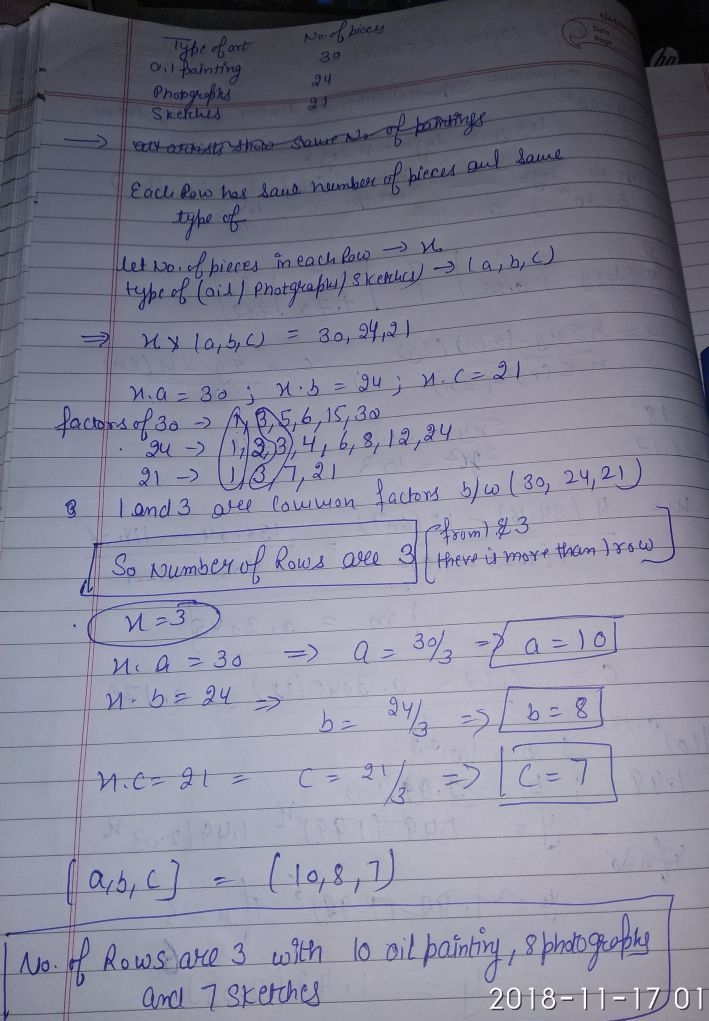 Date
Page
hp
Type of art No. of pieces
Oil painting 30
Photographs 24
Sketches 21
→ all artists show same No of paintings
Each Row has same number of pieces and same
type of
Let No. of pieces in each Row → x
type of (oil / Photgraphs / Sketches) → (a, b, c)
⇒ x × (a, b, c) = 30, 24, 21
x.a = 30 ; x.b = 24 ; x.c = 21
factors of 30 → 1, 3, 5, 6, 15, 30
24 → 1, 2, 3, 4, 6, 8, 12, 24
21 → 1, 3, 7, 21
1 and 3 are common factors b/w (30, 24, 21)
So Number of Rows are 3 [from 1 & 3
there is more than 1 row]
x = 3
x. a = 30 ⇒ a = 30/3 ⇒ a = 10
x. b = 24 ⇒
b = 24/3 ⇒ b = 8
x.c = 21 = c = 21/3 ⇒ c = 7
[a, b, c] = (10, 8, 7)
No. of Rows are 3 with 10 oil painting, 8 photographs
and 7 sketches
2018-11-17 01